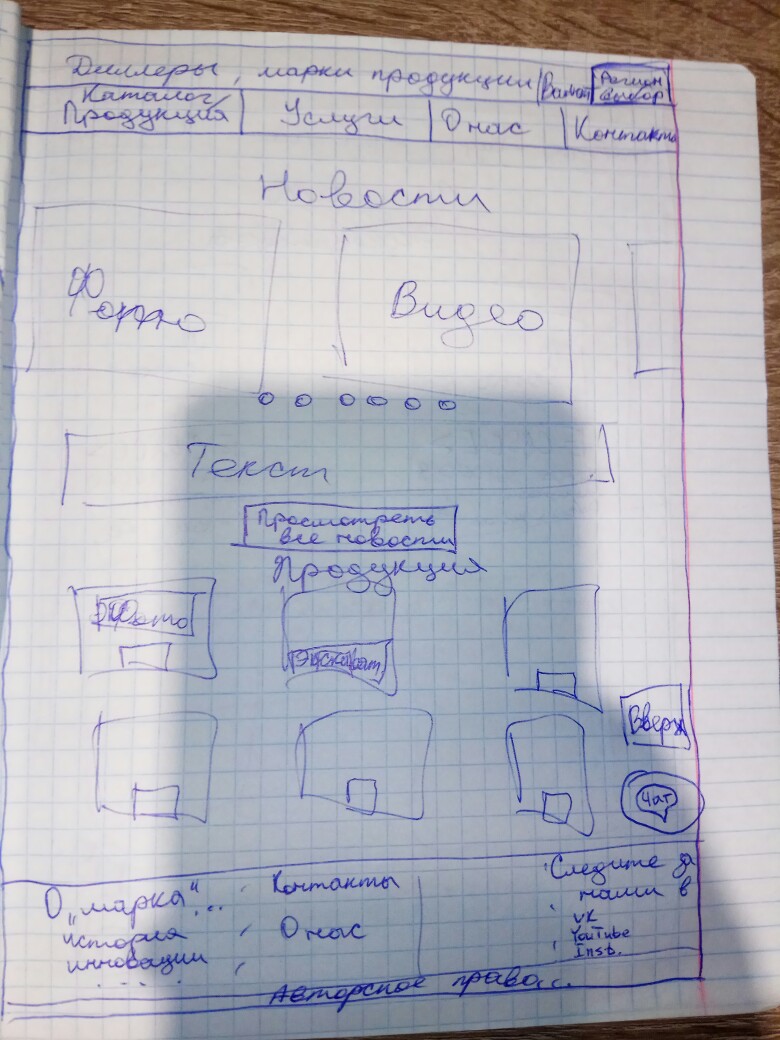 Диллеры, марки продукции
Регион
выбор
Каталог
Продукция
Услуги
О нас
Контакты
Новости
Фото
Видео
Текст
Просмотреть
все новости
Продукция
Фото
Вверх
Чат
О "марка"...
история
инновации
.....
Контакты
О нас
Следите за
нами в
VK
YouTube
Inst.
Авторское право...